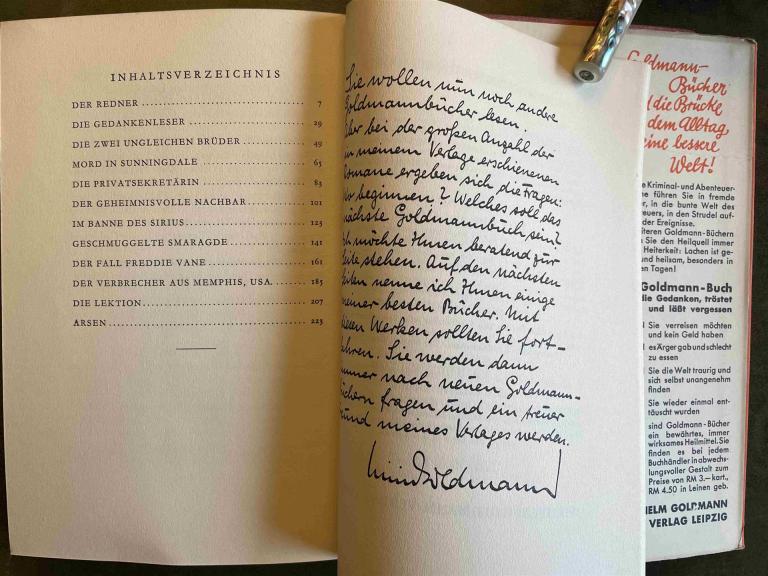 INHALTSVERZEICHNIS
DER REDNER 7
DIE GEDANKENLESER 29
DIE ZWEI UNGLEICHEN BRÜDER 49
MORD IN SUNNINGDALE 65
DIE PRIVATSEKRETÄRIN 83
DER GEHEIMNISVOLLE NACHBAR 101
IM BANNE DES SIRIUS 123
GESCHMUGGELTE SMARAGDE 141
DER FALL FREDDIE VANE 161
DER VERBRECHER AUS MEMPHIS, USA. 185
DIE LEKTION 207
ARSEN 223
Sie wollen nun noch andere
Goldmannbücher lesen.
Aber bei der großen Anzahl der
in meinem Verlage erschienenen
Romane ergeben sich die Fragen:
Wo beginnen? Welches soll das
nächste Goldmannbuch sein?
Ich möchte Ihnen beratend zur
Seite stehen. Auf den nächsten
Seiten nenne ich Ihnen einige
meiner besten Bücher. Mit
diesen Werken sollten Sie fort-
fahren. Sie werden dann
immer nach neuen Goldmann-
büchern fragen und ein treuer
Freund meines Verlages werden.
Goldmann-
Bücher
die Brücke
dem Alltag,
eine bessere
Welt!
Kriminal- und Abenteuer-
führen Sie in fremde
in die bunte Welt des
in den Strudel auf-
der Ereignisse.
Goldmann-Büchern
Sie den Heilquell immer
Heiterkeit: Lachen ist ge-
und heilsam, besonders in
Tagen!
Goldmann-Buch
die Gedanken, tröstet
und läßt vergessen
Sie verreisen möchten
und kein Geld haben
es Ärger gab und schlecht
zu essen
Sie die Welt traurig und
sich selbst unangenehm
finden
Sie wieder einmal ent-
täuscht wurden
sind Goldmann-Bücher
ein bewährtes, immer
wirksames Heilmittel. Sie
finden es bei jedem
Buchhändler in abwechs-
lungsvoller Gestalt zum
Preise von RM 3.— kart.,
RM 4.50 in Leinen geb.
HELM GOLDMANN
VERLAG LEIPZIG